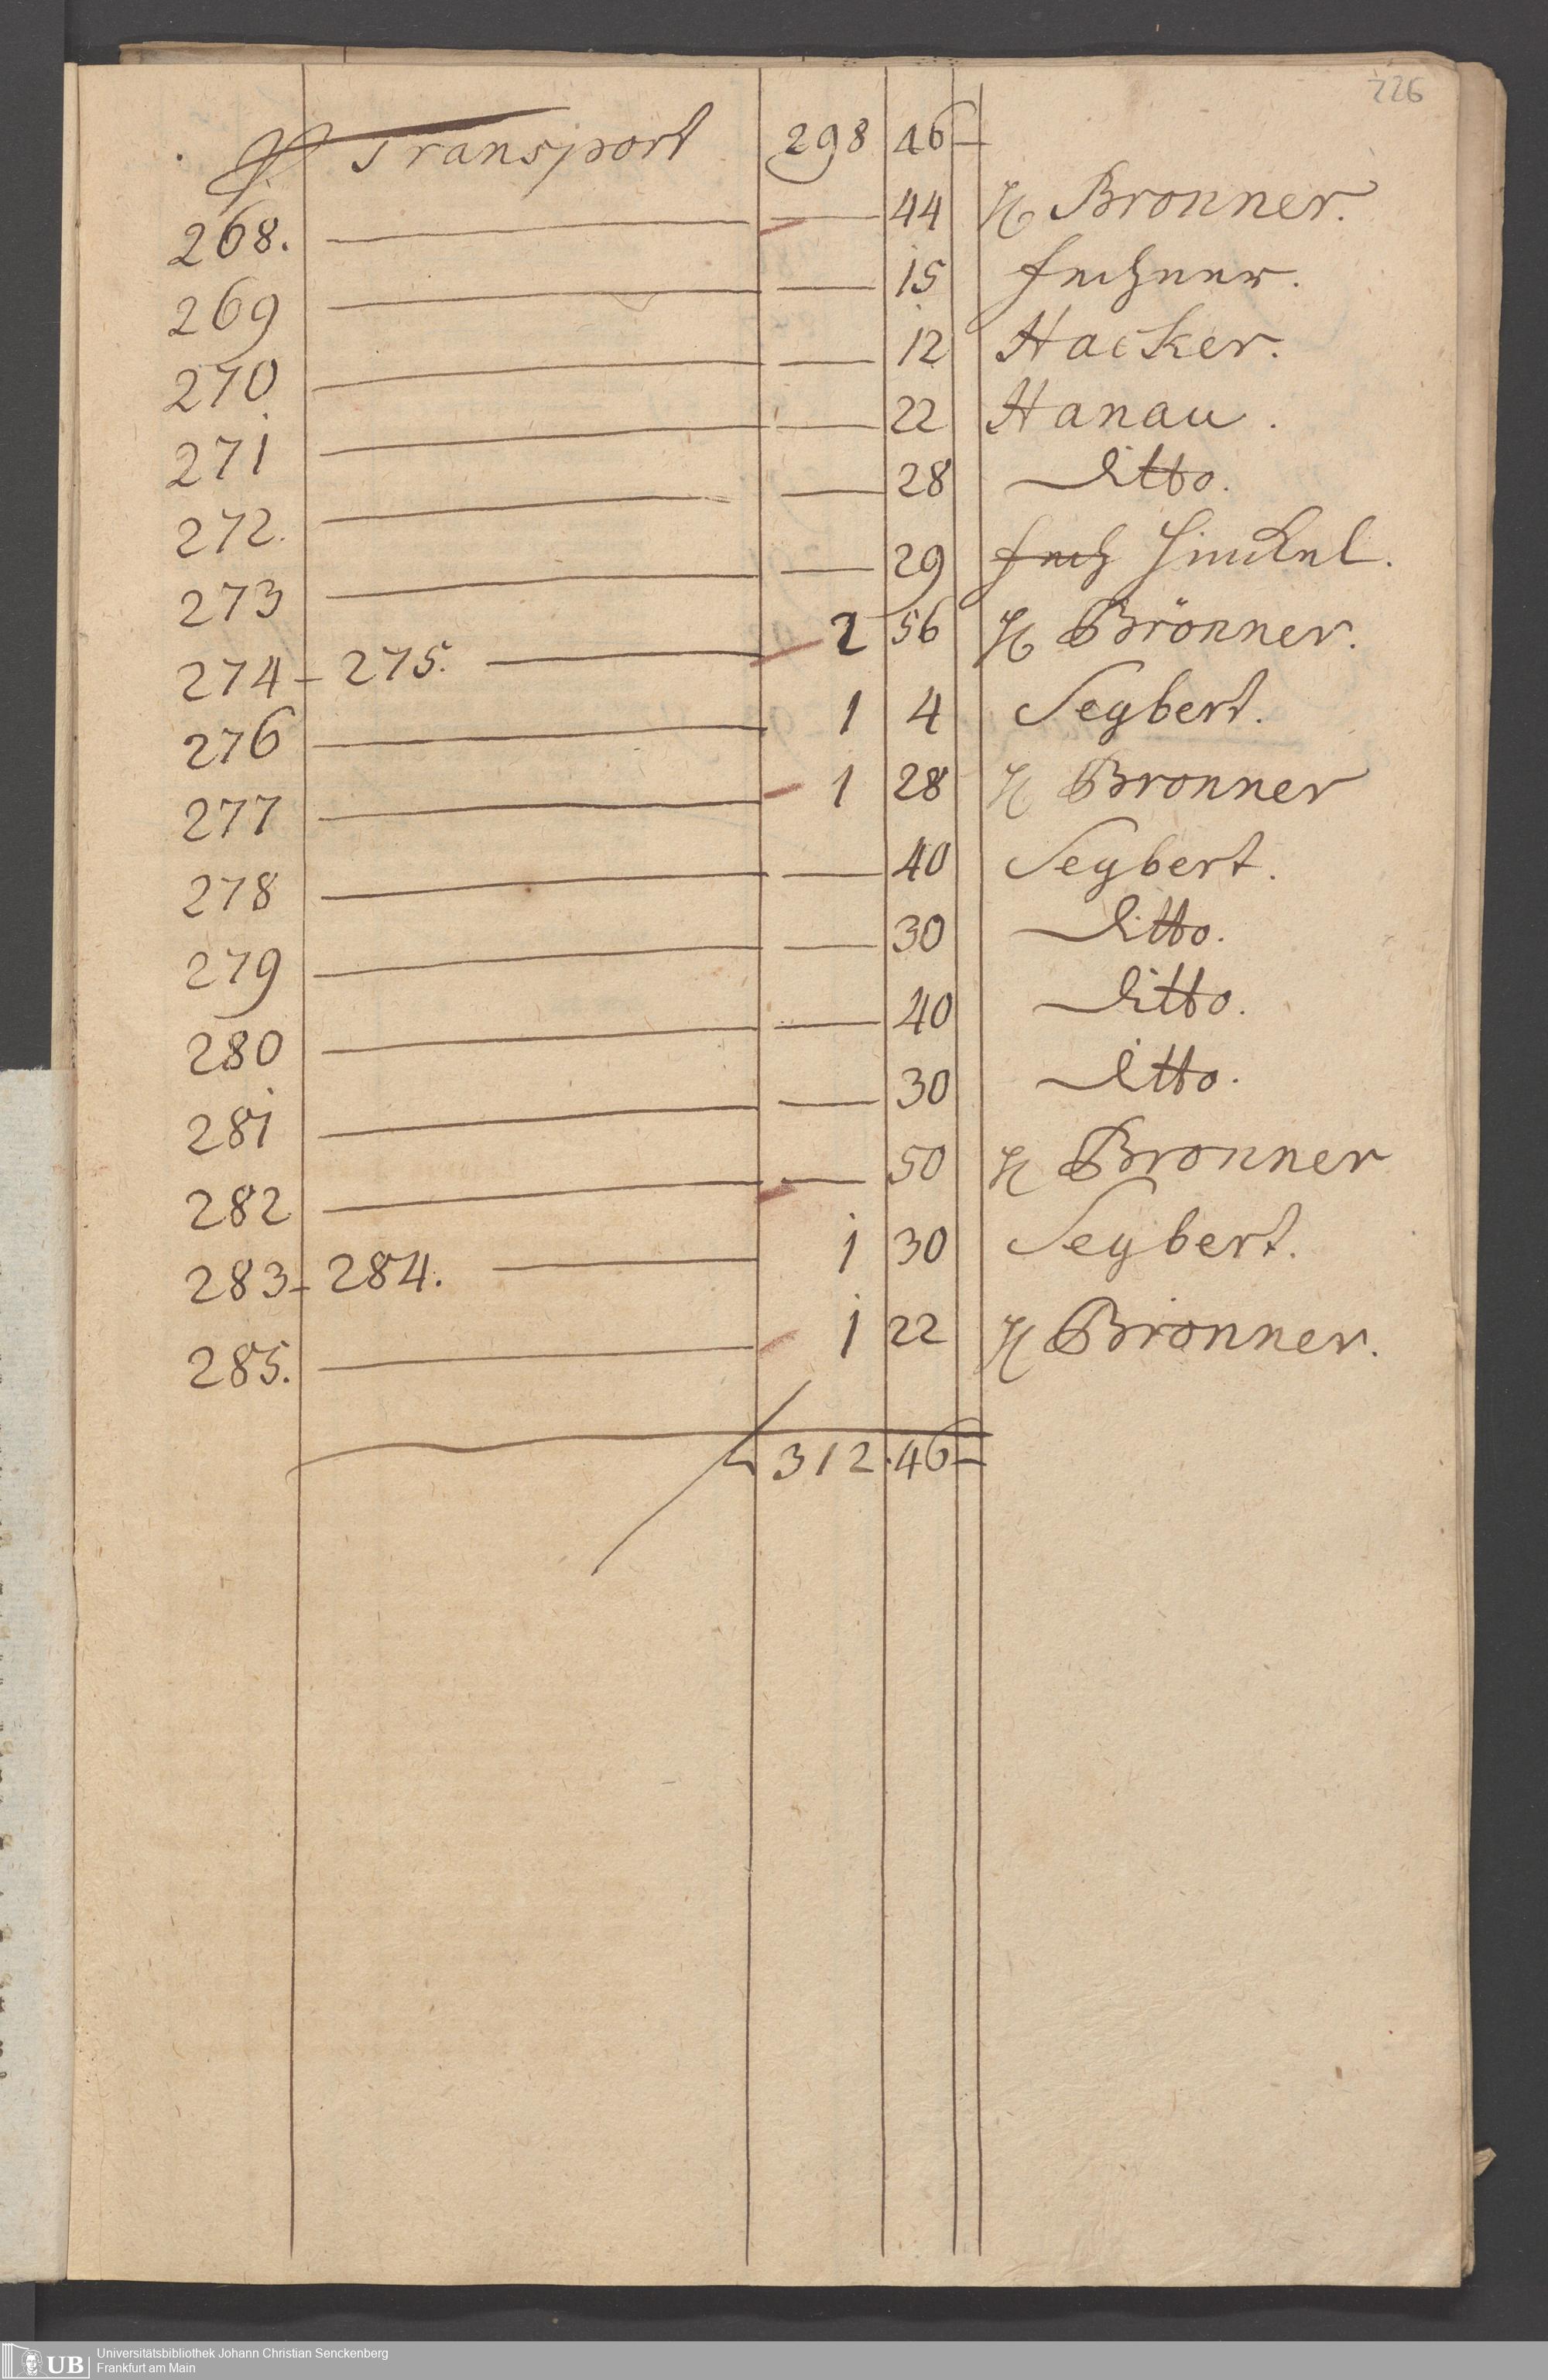 226
Transport 298 46
268. — — 44 H Bronner.
269 — — 15 Fechner.
270 — — 12 Hacker.
271 — — 22 Hanau.
272. — — 28 Ditto.
273 — — 29 Fech Hinckel.
274 - 275. — 2 56 H Brönner.
276 — 1 4 Segbert.
277 — 1 28 H Bronner
278 — — 40 Segbert.
279 — — 30 Ditto.
280 — — 40 Ditto.
281 — — 30 Ditto.
282 — — 50 H Bronner
283 - 284. — 1 30 Segbert.
285. — 1 22 H Brönner.
312. 46
UB Universitätsbibliothek Johann Christian Senckenberg
Frankfurt am Main